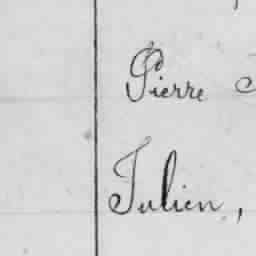 Pierre
Julien,